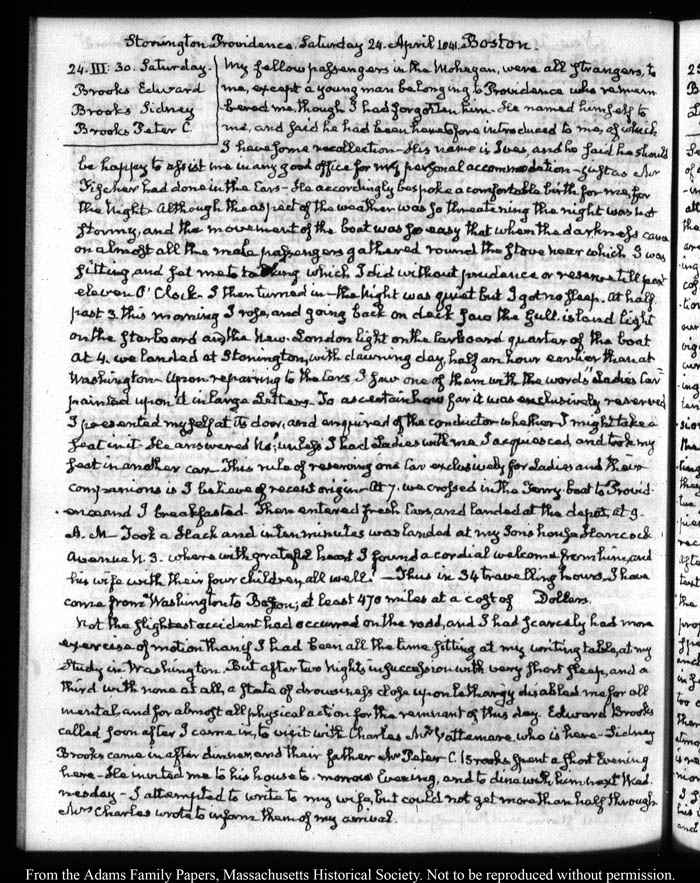 Stonington Providence. Saturday 24. April 1841. Boston.
24. III: 30. Saturday.
Brooks Edward
Brooks Sidney
Brooks Peter C.
My fellow passengers in the Mohegan, were all strangers, to
me, except a young man belonging to Providence who remem-
bered me, though I had forgotten him. He named himself to
me, and said he had been heretofore introduced to me, of which
I have some recollection - His name is Ives, and he said he should
be happy to assist me in any good office for my personal accommodation - just as Mr
had done in the Cars - He accordingly bespoke a comfortable birth for me, for
the night. Although the aspect of the weather was so threatening the night was not
stormy, and the movement of the boat was so easy that when the darkness came
on almost all the male passengers gathered round the stove near which I was
sitting, and set me to talking which I did without prudence or reserve till past
eleven O' Clock. I then turned in - the night was quiet but I got no sleep. At half
past 3. this morning I rose, and going back on deck saw the Gull island light
on the starboard and the New-London light on the larboard quarter of the boat
At 4. we landed at Stonington, with dawning day, half an hour earlier than at
Washington. Upon repairing to the Cars I saw one of them with the words "Ladies Car"
painted upon it in large Letters. To ascertain how far it was exclusively reserved
I presented myself at its door, and enquired of the conductor whether I might take a
seat in it. He answered No; unless I had Ladies with me. I acquiesced, and took my
seat in another car. This rule of reserving one Car exclusively for Ladies and their
companions is I believe of recent origin - At 7. we crossed in the Ferry boat to Provid-
ence and I breakfasted. Then entered fresh Cars, and landed at the depot, at 9.
A. M. Took a Hack and in ten minutes was landed at my Sons house Hancock
Avenue N. 3. where with grateful heart I found a cordial welcome from him, and
his wife with their four children, all well. - Thus in 34 travelling hours, I have
come from Washington to Boston; at least 470 miles at a cost of Dollars.
Not the slightest accident had occurred on the road, and I had scarcely had more
exercise of motion than if I had been all the time sitting at my writing table, at my
Study in Washington. But after two Nights in succession with very short sleep, and a
third with none at all, a state of drowsiness close upon lethargy disabled me for all
mental and for almost all physical action for the remnant of this day. Edward Brooks
called soon after I came in, to visit with Charles, Mr Vattemare who is here - Sidney
Brooks came in after dinner, and their father Mr Peter C. Brooks spent a short Evening
here - He invited me to his house to-morrow Evening, and to dine with him next Wed-
nesday - I attempted to write to my wife, but could not get more than half through
Mrs Charles wrote to inform them of my arrival.
From the Adams Family Papers, Massachusetts Historical Society. Not to be reproduced without permission.